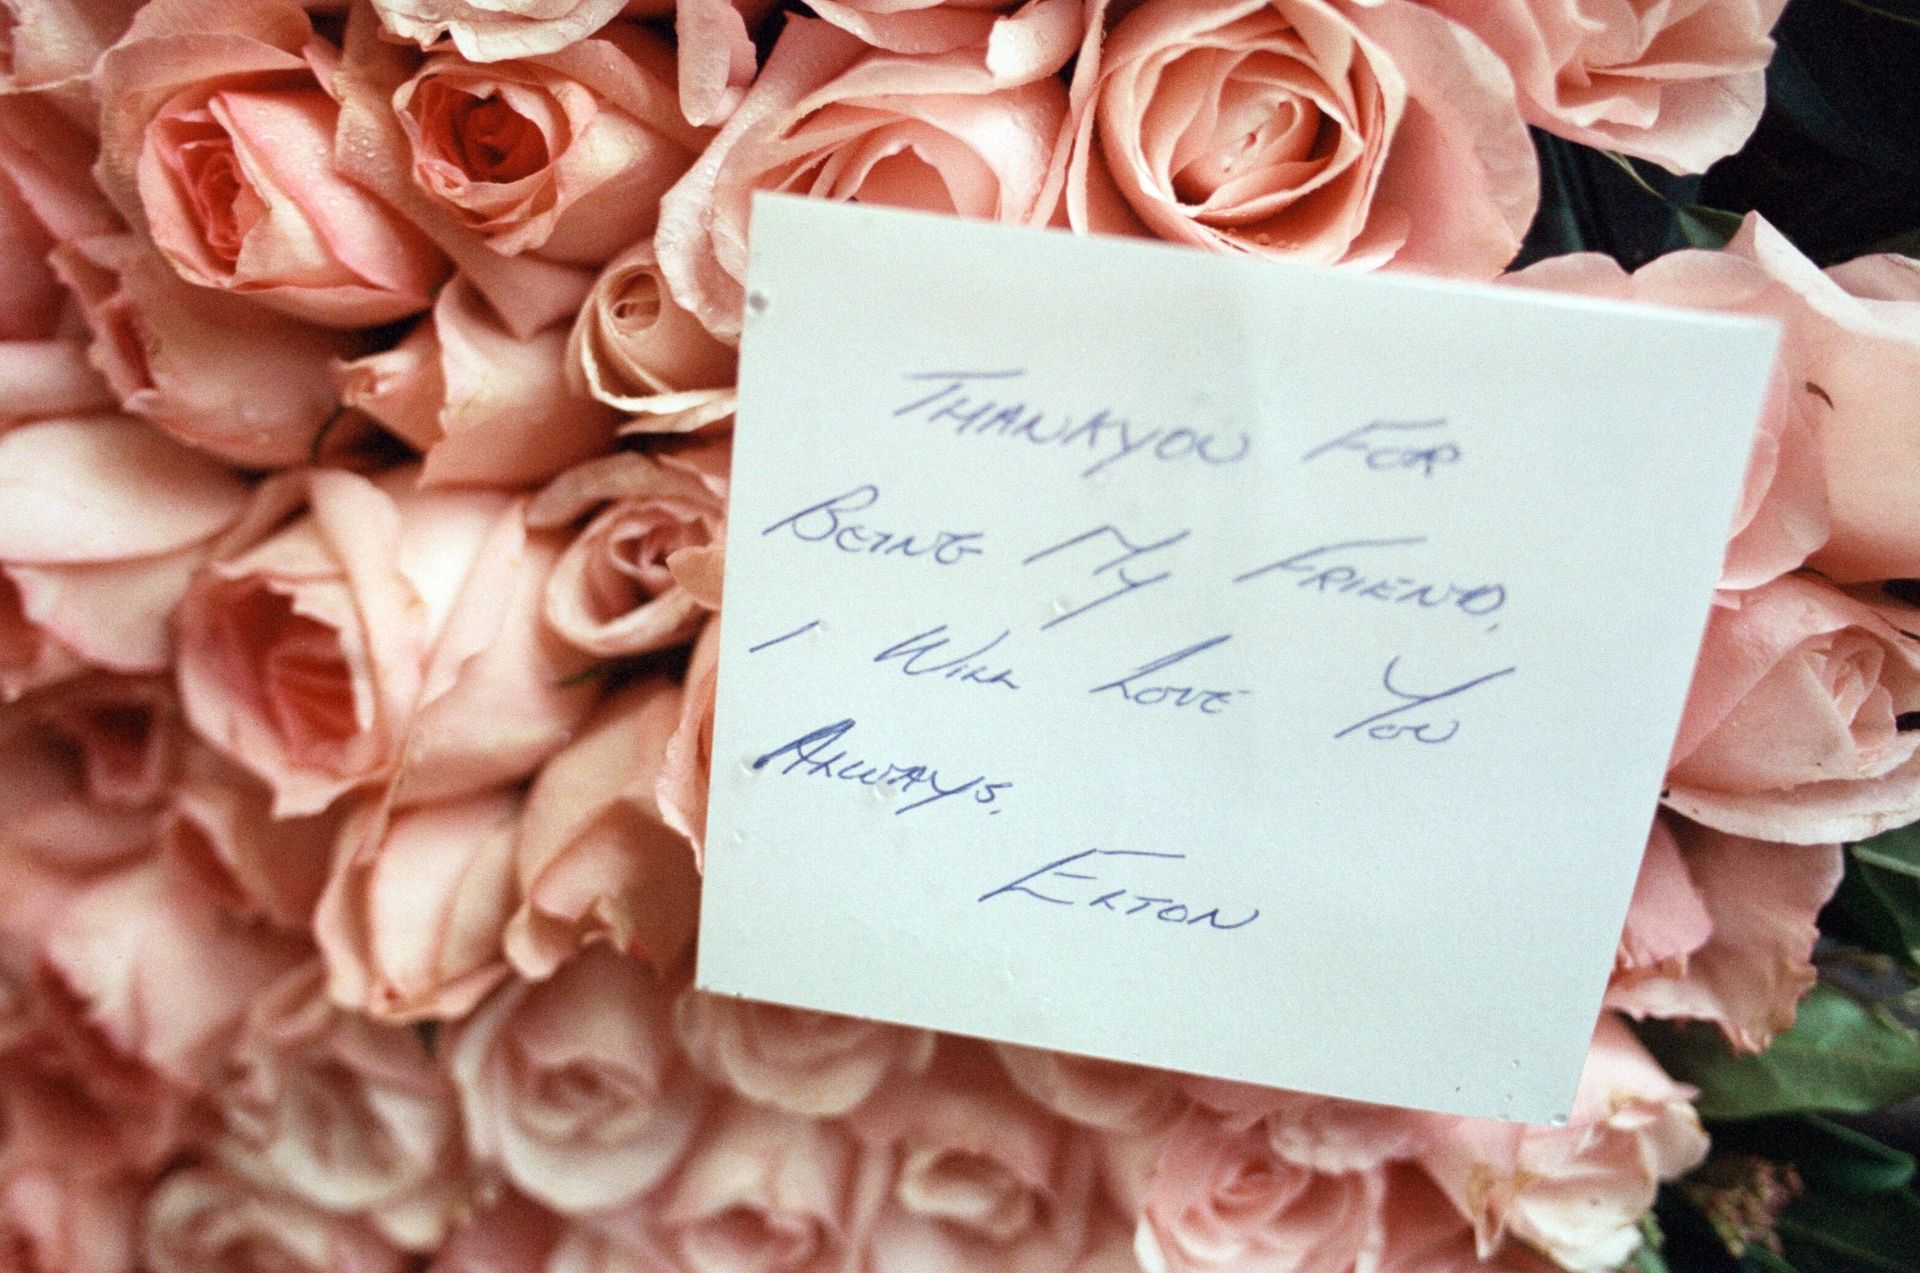 THANKYOU FOR
BEING MY FRIEND.
I WILL LOVE YOU
ALWAYS.
ELTON